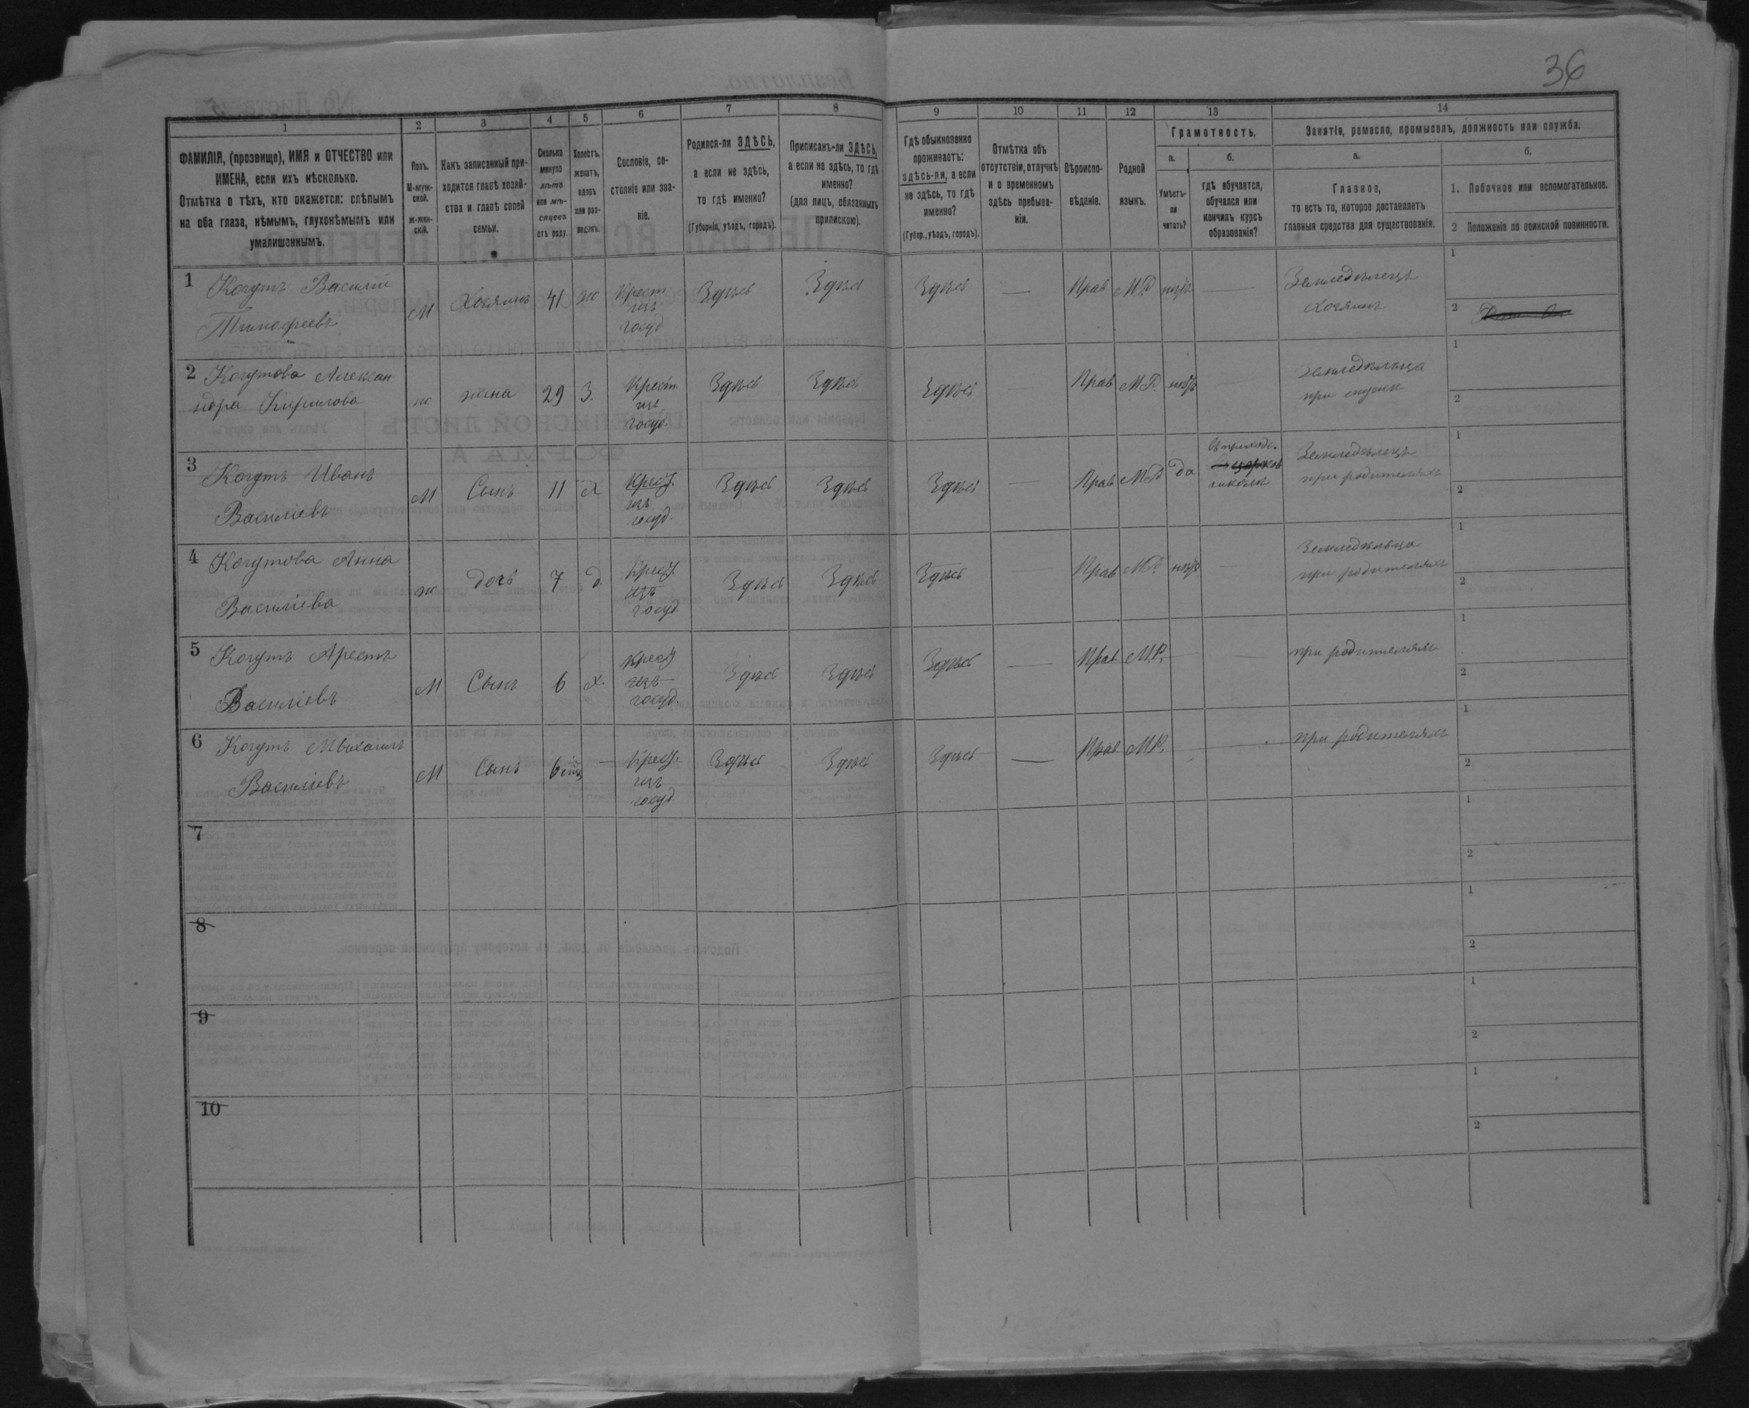 36
1
2
3
4
5
6
7
8
9
10
11
12
13
14
ФАМИЛІЯ, (прозвище), ИМЯ и ОТЧЕСТВО или
ИМЕНА, если ихъ нѣсколько.
Отмѣтка о тѣхъ, кто окажется: слѣпымъ
на оба глаза, нѣмымъ, глухонѣмымъ или
умалишоннымъ.
Полъ.
М-муж-
ской.
Ж-жен-
скій.
Какъ записанный при-
ходится главѣ хозяй-
ства и главѣ своей
семьи.
Сколько
минуло
лѣтъ
или мѣ-
сяцевъ
отъ роду.
Холостъ,
женатъ,
вдовъ
или раз-
веденъ.
Сословіе, со-
стояніе или зва-
ніе.
Родился-ли ЗДѢСЬ,
а если не здѣсь,
то гдѣ именно?
(Губернія, уѣздъ, городъ).
Приписанъ-ли ЗДѢСЬ,
а если не здѣсь, то гдѣ
именно?
(для лицъ, обязанныхъ
припискою).
Гдѣ обыкновенно
проживаетъ:
здѣсь-ли, а если
не здѣсь, то гдѣ
именно?
(Губер., уѣздъ, городъ).
Отмѣтка объ
отсутствіи, отлучкѣ
и о временномъ
здѣсь пребыва-
ніи.
Вѣроиспо-
вѣданіе.
Родной
языкъ.
Грамотность.
а.
Умѣетъ-
ли
читать?
б.
гдѣ обучается,
обучался или
кончилъ курсъ
образованія?
Занятіе, ремесло, промыселъ, должность или служба.
а.
Главное,
то есть то, которое доставляетъ
главныя средства для существованія.
б.
1. Побочное или вспомогательное.
2 Положеніе по воинской повинности.
1 Когутъ Василій
Тимофеевъ
М Хозяинъ 41 ж Крест
изъ
госуд
Здѣсь Здѣсь Здѣсь — Прав М.Р. нѣтъ —
Земледѣлецъ
хозяинъ
1
2
2 Когутова Алексан
дра Кирилова
ж жена 29 З. Крест
изъ
госуд.
Здѣсь Здѣсь Здѣсь — Прав М.Р. нѣтъ —
Земледѣлица
при мужѣ
1
2
3 Когутъ Иванъ
Василіевъ
М Сынъ 11 х Крест.
изъ
госуд.
Здѣсь Здѣсь Здѣсь — Прав М.Р. да
школѣ
Земледѣлецъ
при родителяхъ
1
2
4 Когутова Анна
Василіева
ж дочь 7 д Крест
изъ
госуд
Здѣсь Здѣсь Здѣсь — Прав М.Р. нѣтъ —
Земледѣлица
при родителяхъ
1
2
5 Когутъ Арестъ
Василіевъ
М Сынъ 6 х. Крест
изъ
госуд.
Здѣсь Здѣсь Здѣсь — Прав М.Р. — —
при родителяхъ
1
2
6 Когутъ Михаилъ
Василіевъ
М Сынъ 6 мц — Крест.
изъ
госуд.
Здѣсь Здѣсь Здѣсь — Прав М.Р. — —
при родителяхъ
1
2
7
1
2
8
1
2
9
1
2
10
1
2